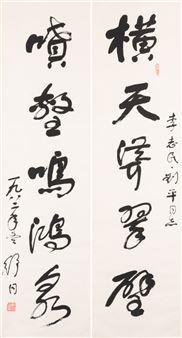 横天泻翠壁
喷壑鸣鸿泉
李志民·刘平同志
一九八二年冬舒同